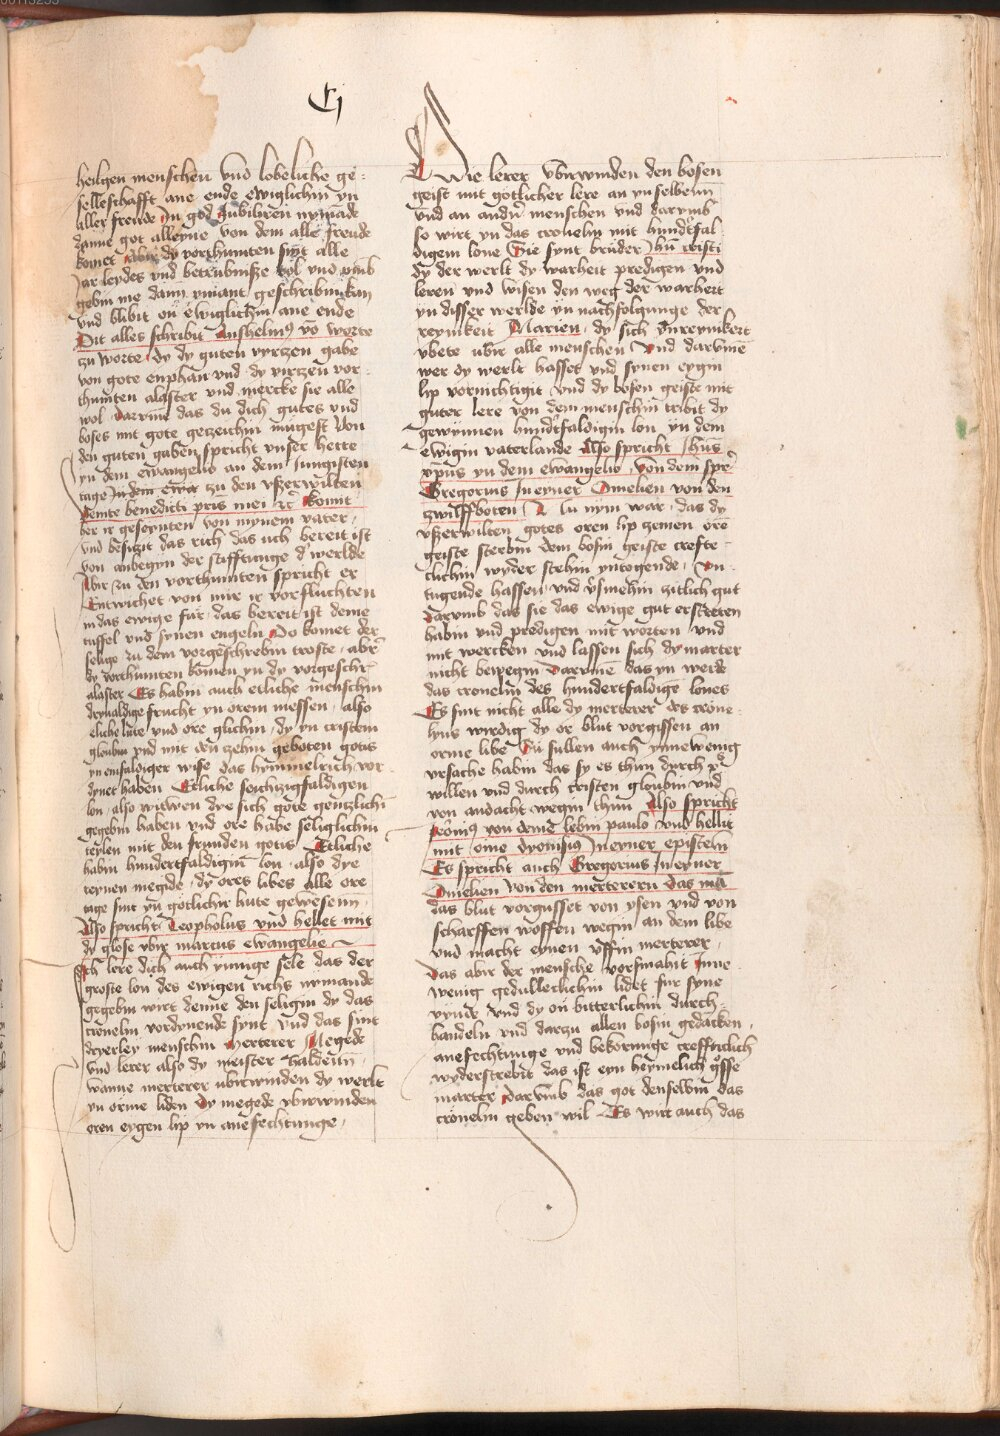 Cj
heilgen menschen vnd lobeliche ge-
selleschafft ane ende ewiglichin yn
aller freude in god Jubiliren nymāde
danne got alleyne von dem alle freude
komet Abir dy vorthumten sint alle
Jar leydes vnd betrubnisze vol vnd
gebin me dann ymant geschribin kan
vnd blibit on ewiglichin ane ende
Dit alles schribit Anshelmꝰ vō worte
zu worte dy dy guten vyrzen gabe
von gote enphan vnd dy virzen vor-
thumten alaster vnd mercke sie alle
wol Darvme das du dich gutes vnd
boses mit gote gezeichin mugest Von
den guten gaben spricht vnser herre
yn dem ewangelio an dem Jungisten
tage zu den vszerwilten
venite benedicti pris mei ꝛc Komt
her ir geseynten von mynem vater
vnd besitzit das rich das uch bereit ist
von anbegyn der stifftunge d' werlde
Abir zu den vorthumten spricht er
Entwichet von mir ir vorfluchten
in das ewige fur das bereit ist deme
tuffel vnd synen engeln Do komet der
selige zu dem vorgeschrebin troste abir
dy vorthumten komen yn dy vorgeschr
alaster Es habin auch etliche menschin
dryualdige frucht yn orem messen also
eliche lute vnd ore glichin dy yn cristem
gloubin vnd mit den zehin geboten gotis
yn einfaldiger wise das hymmelrich vor
dynet haben Etliche sechzigfaldigen
lon also witwen dye sich gote gentzlichī
gegebin haben vnd ore habe seliglichin
teylen mit den frunden gotis Etliche
habin hundertfaldigin lon also dye
reynen megide dy ores libes alle ore
tage sint yn gotlichir hute gewesenn
Also spricht Teopholus vnd hellet mit
dy glose vbir marcus ewangelie
Ich lere dich auch ynnige sele das der
groste lon des ewigen richs nymande
gegebin wirt denne den seligin dy das
cronelin vordynende synt vnd das sint
dryerley menschin Merterer Megede
vnd lerer also dy meister haldenn
wanne merterer vbirwinden dy werlt
yn orme liden Dy megede vbirwinden
oren eygen lip yn anefechtunge
Die lerer vbirwinden den bosen
geist mit gotlicher lere an ynselbenn
vnd an andīn menschen vnd darvmb
so wirt yn das cronelin mit hundtfal
digem lone Sie synt bruder Jhū cristi
dy der werlt dy warheit predigen vnd
leren vnd wisen den weg der warheit
yn disser werlde yn nachfolgunge der
reynikeit Marien dy sich
vbete vbir alle menschen Vnd darvme
wer dy werlt hasset vnd synen eygin
lip vornichtigit vnd dy bosen geiste mit
guter lere von dem menschin tribit dy
gewynnen hundtfaldigin lon yn dem
ewigin vaterlande Also spricht Jhūs
xp̄us yn dem ewangelio Von dem spr
Gregorius In eyner Omelien von den
zwilffboten Nu nym war das dy
vszerwilten gotes oren lip zemen ore
geiste sterbin dem bosin geiste crefte-
clichin wyder stehin yntogende Vn-
tugende hassen vnd vsmehin zitlich gut
Darvmb das sie das ewige gut erstreten
habin vnd predigen mit worten vnd
mit wercken vnd lassen sich dy marter
nicht bewegin Darvme das yn werde
das cronelin des hundertfaldigē lones
Es sint nicht alle dy merterer des crone-
lyns wirdig dy or blut vorgissen an
orme libe Sū sullen auch ynnewenig
vrsache habin das sy es thun durch
willen vnd durch cristen gloubin vnd
von andacht wegin thun Also spricht
Jeronimꝰ von deme lebin paulo vnd hellit
mit ome dyonisiꝰ In eyner episteln
Es spricht auch Gregorius In eyner
Omelien von den merterern das mā
das blut vorgusset von ysen vnd von
scharffen woffen wegin an dem libe
vnd macht eynen vffin merterer
Das abir der mensche vorsmahit Inne
wenig gedullechlichin lidet fur syne
vynde vnd dy on bitterlichin durch
handeln vnd darzu allen bosin gedācken
anefechtunge vnd bekorunge crefftichlich
wyderstrebit das ist eyn heymelich gosse
marter Darvmb das got denselbin das
cronelin geben wil Es wirt auch das